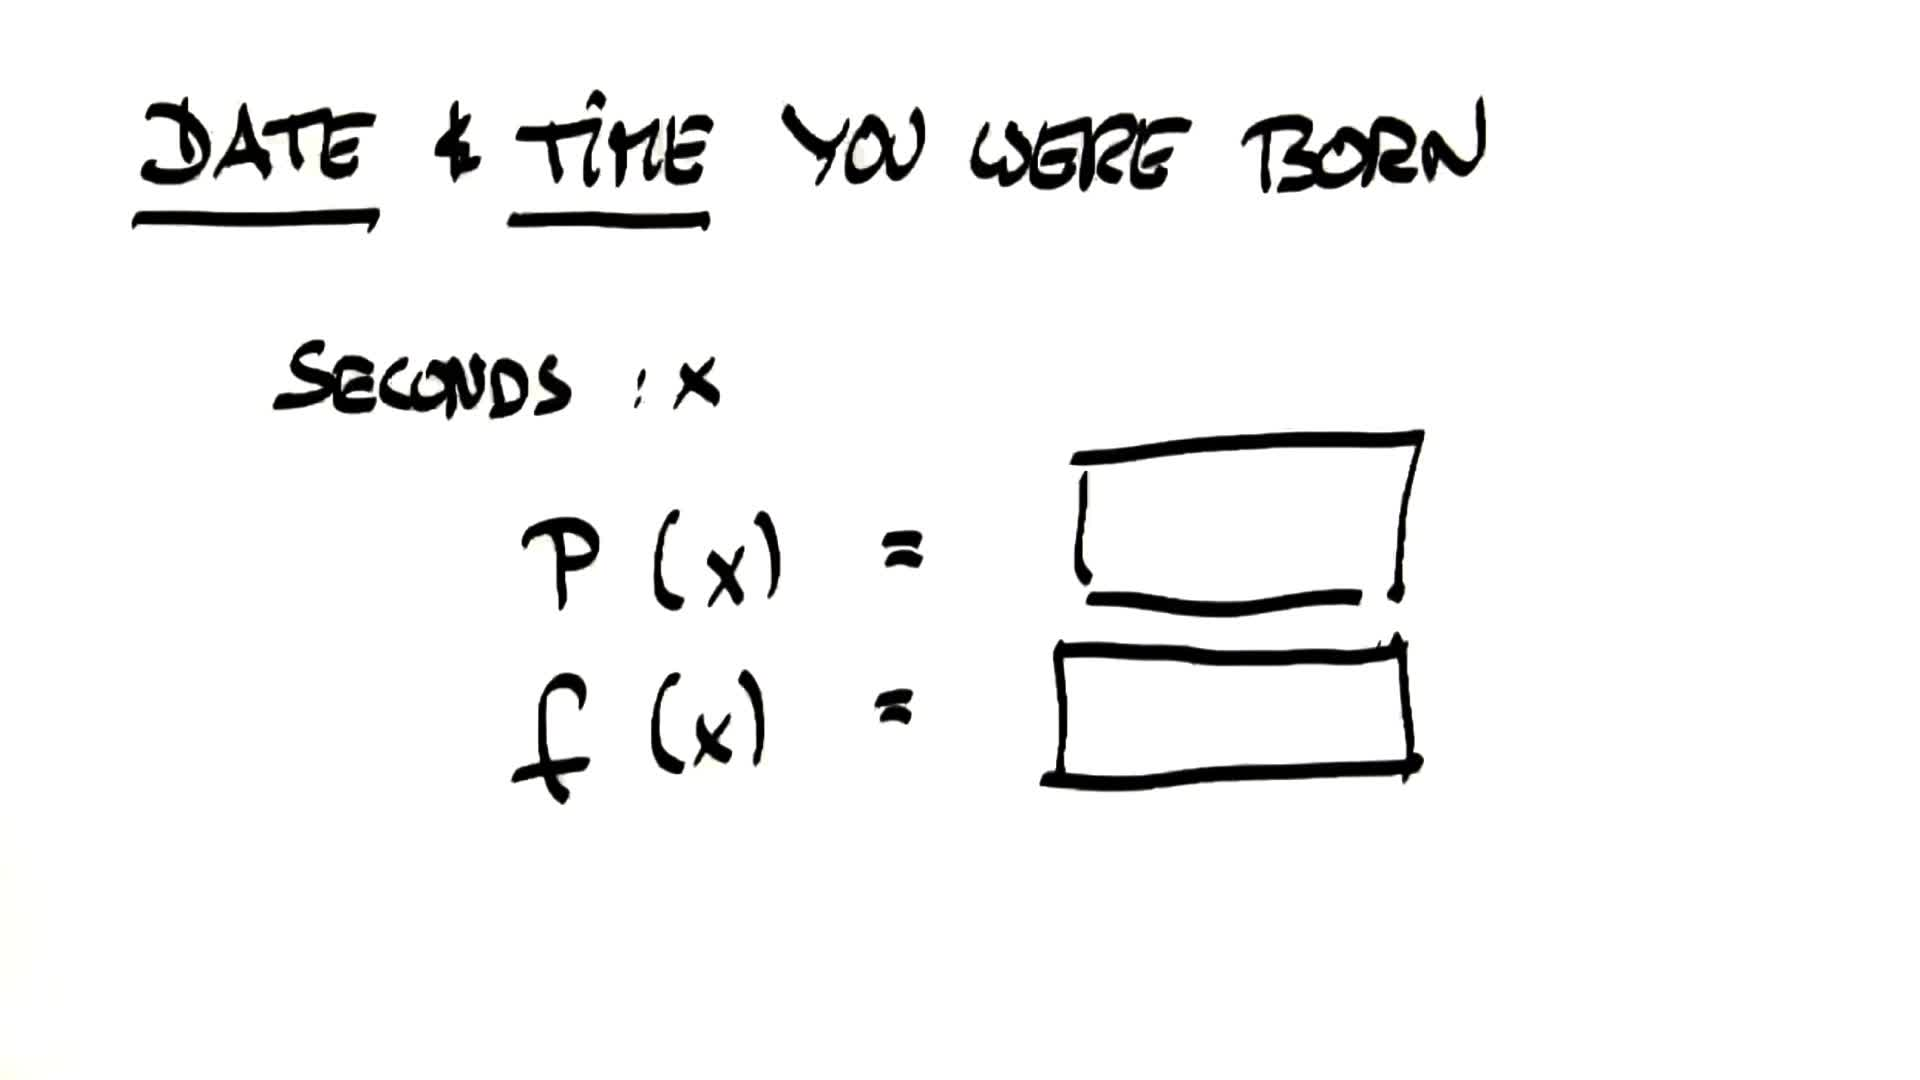 DATE & TIME YOU WERE BORN
SECONDS : x
P (x) =
f (x) =